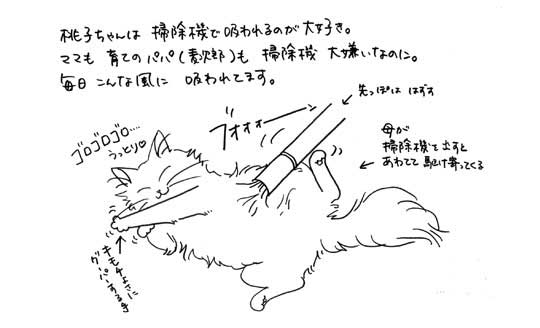 桃子ちゃんは 掃除機で 吸われるのが 大好き。
ママも 育ての パパ(麦次郎)も 掃除機 大嫌いなのに。
毎日 こんな風に 吸われてます。
先っぽは はずす
ブオォォォ
ゴロゴロゴロ…
うっとり♡
母が
掃除機を出すと
あわてて 駆け寄ってくる
キモチよさに
グーパーする手